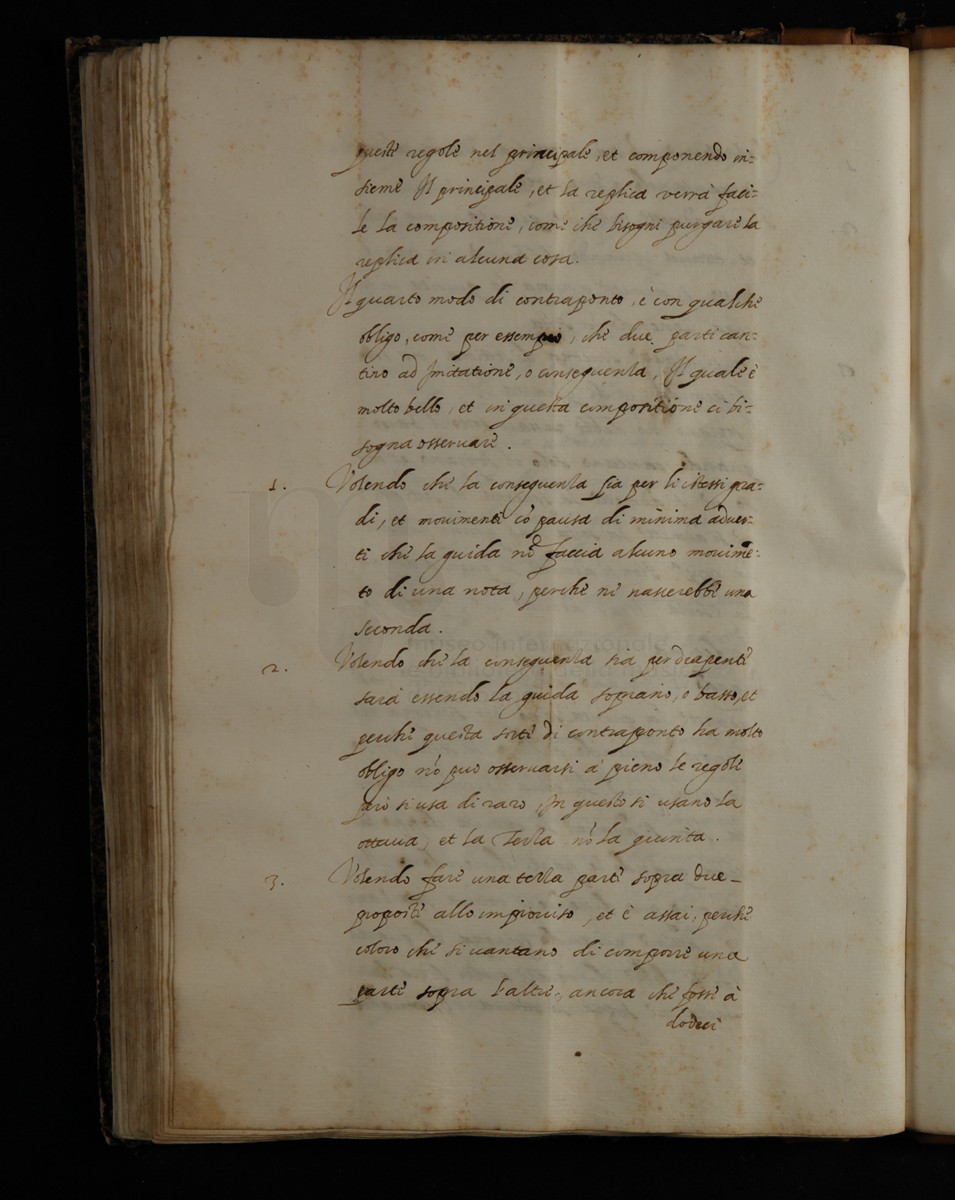 queste regole nel principale, et componendo in-
sieme Il principale, et la replica verrà faci-
le la compositione, come che bisogni purgare la
replica in alcuna cosa.
Il quarto modo di contraponto, è con qualche
obligo, come per essempio, che due parti can-
tino ad Imitatione, o consequenza, Il quale è
molto bello, et in questa compositione ci bi-
sogna osservare.
1. Volendo che la consequenza sia per li istessi gra-
di, et movimenti cō pausa di minima adver-
ti che la guida nō faccia alcuno movimē-
to di una nota, perche ne nascerebbe una
seconda.
2. Volendo che la consequenza sia per diapente
sarà essendo la guida soprano, o basso, et
perche questa sorte di contraponto ha molto
obligo nō può osservarsi à pieno le regole
però si usa di raro, In questo si usano la
ottava, et la Terza nō la quinta.
3. Volendo fare una terza parte sopra due
proposte allo improviso, et è assai, perche
coloro che si vantano di comporre una
parte sopra l'altre, ancora che fosse à
dodeci